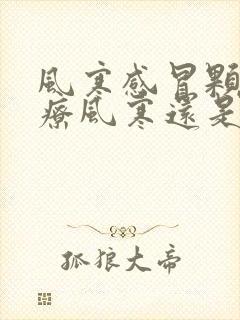 風寒感冒顆
療風寒還是
孤狼大帝